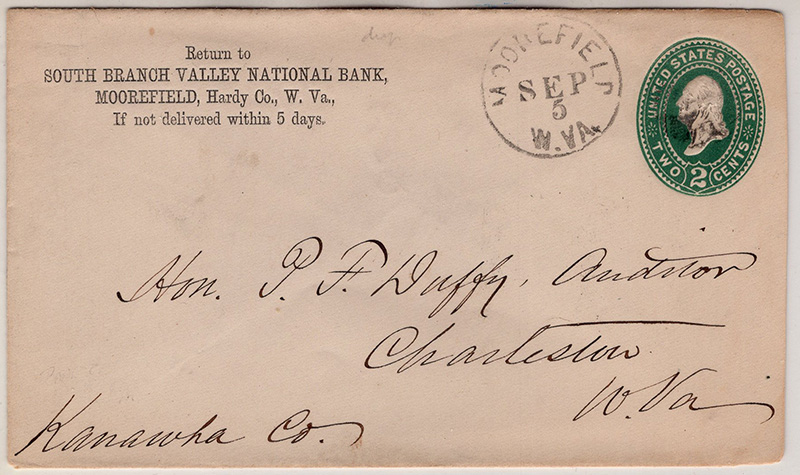 Return to
SOUTH BRANCH VALLEY NATIONAL BANK,
MOOREFIELD, Hardy Co., W. Va.,
If not delivered within 5 days.
MOOREFIELD
SEP
5
W.VA.
UNITED STATES POSTAGE
TWO 2 CENTS
Hon. P. F. Duffy, Auditor
Charleston
W. Va
Kanawha Co.